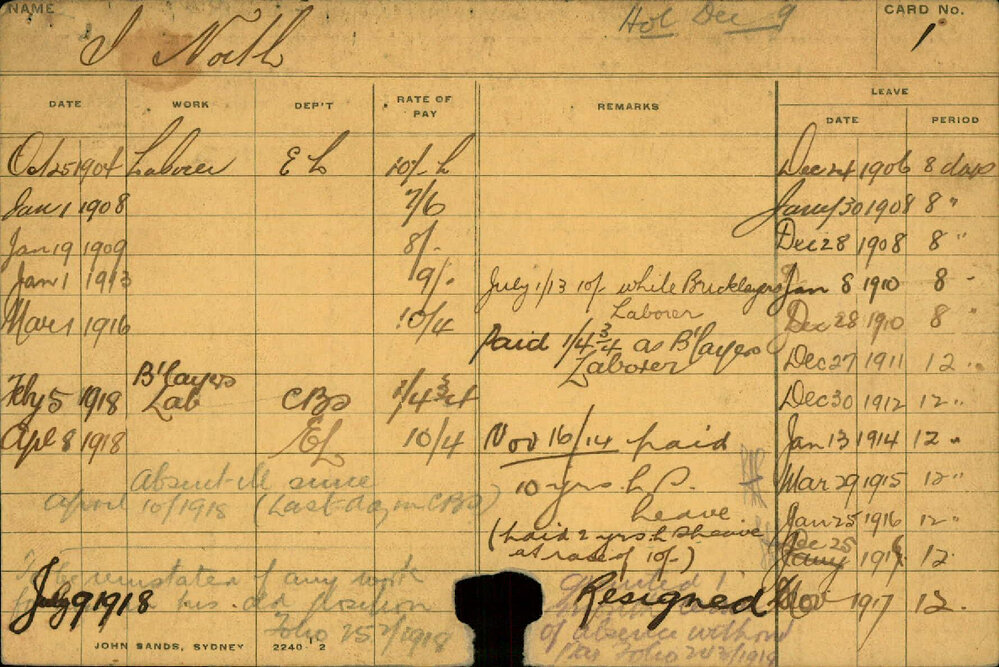 NAME
I North
Hol Dec 9
CARD NO.
1
DATE WORK DEP'T RATE OF PAY REMARKS LEAVE
DATE PERIOD
Oct 25 1904 Laborer E L 10/- Dec 24 1906 8 days
Jan 1 1908 7/6 Jany 30 1908 8 "
Jan 19 1909 8/- Dec 28 1908 8 "
Jan 1 1913 9/- July 1/13 10/- while Bricklayers Jan 8 1910 8 "
Laborer
Mar 1 1916 10/4 Dec 28 1910 8 "
Paid 1/4 3/4 as B'layers
Laborer
Dec 27 1911 12 "
B'layers
Feby 5 1918 Lab CBD 1/4 3/4 Dec 30 1912 12 "
Apl 8 1918 EL 10/4 Nov 16/14 paid Jan 13 1914 12 "
Absent ill since
10 yrs L S. Mar 29 1915 12 "
April 10/1918 (Last day in CBD)
Leave
Jan 25 1916 12 "
(paid 2 yrs L S Leave
at rate of 10/-)
Dec 25
Jany 1916 12
To be reinstated if any work
in his old position
July 9 1918
Folio 252/1918
granted
Resigned
Nov 1917 12.
of absence without
pay Folio 203/1918
JOHN SANDS, SYDNEY 2240-'12